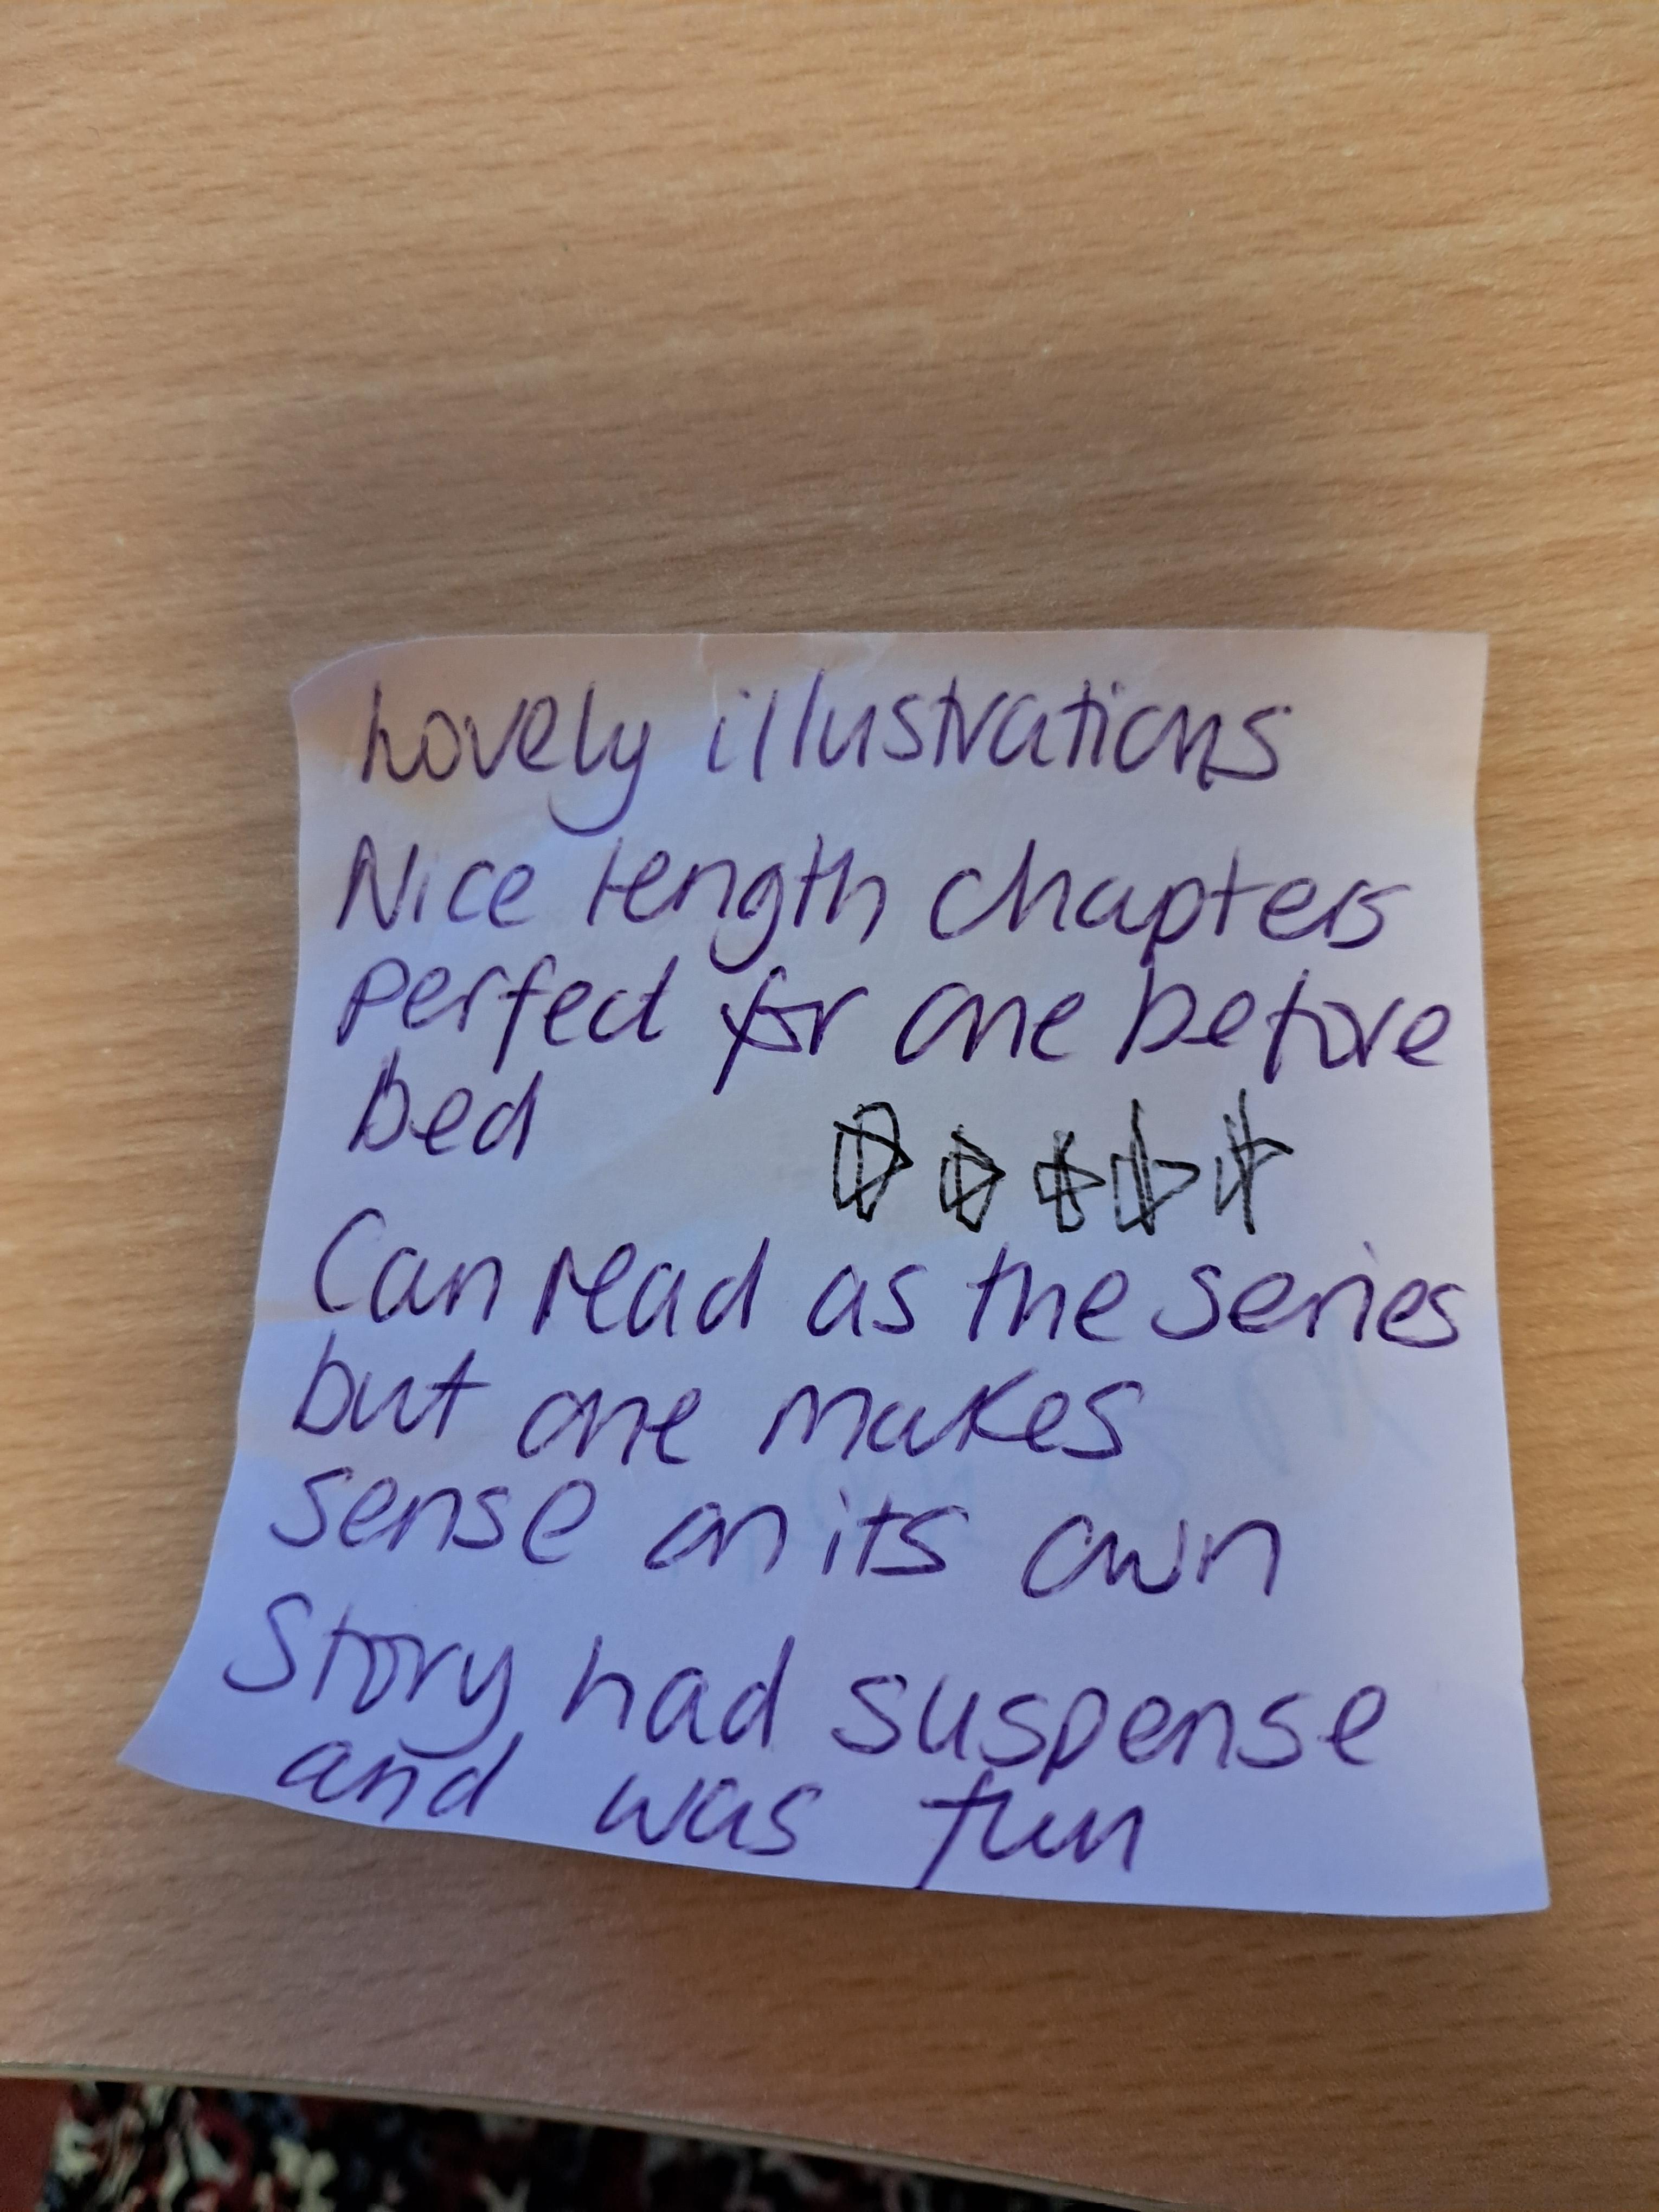 Lovely illustrations
Nice length chapters
perfect for one before
bed
Can read as the series
but one makes
sense on its own
Story had suspense
and was fun